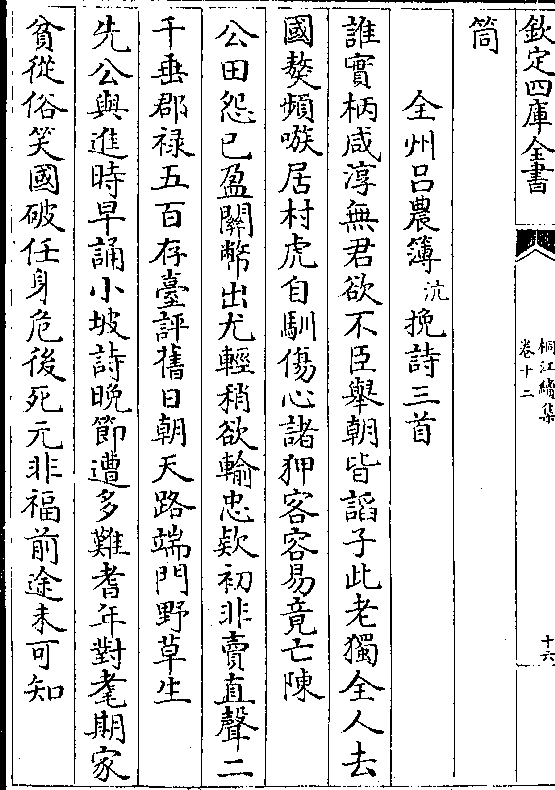 欽定四庫全書
桐江續集
卷十二
十六
筒
全州呂農簿沆挽詩三首
誰實柄咸淳無君欲不臣舉朝皆謟子此老獨全人去
國獒頻嗾居村虎自馴傷心諸狎客容易竟亡陳
公田怨已盈關幣出尤輕稍欲輸忠欵初非賣直聲二
千垂郡禄五百存臺評舊日朝天路端門野草生
先公與進時早誦小坡詩晚節遭多難耆年對耄期家
貧從俗笑國破任身危後死元非福前途未可知